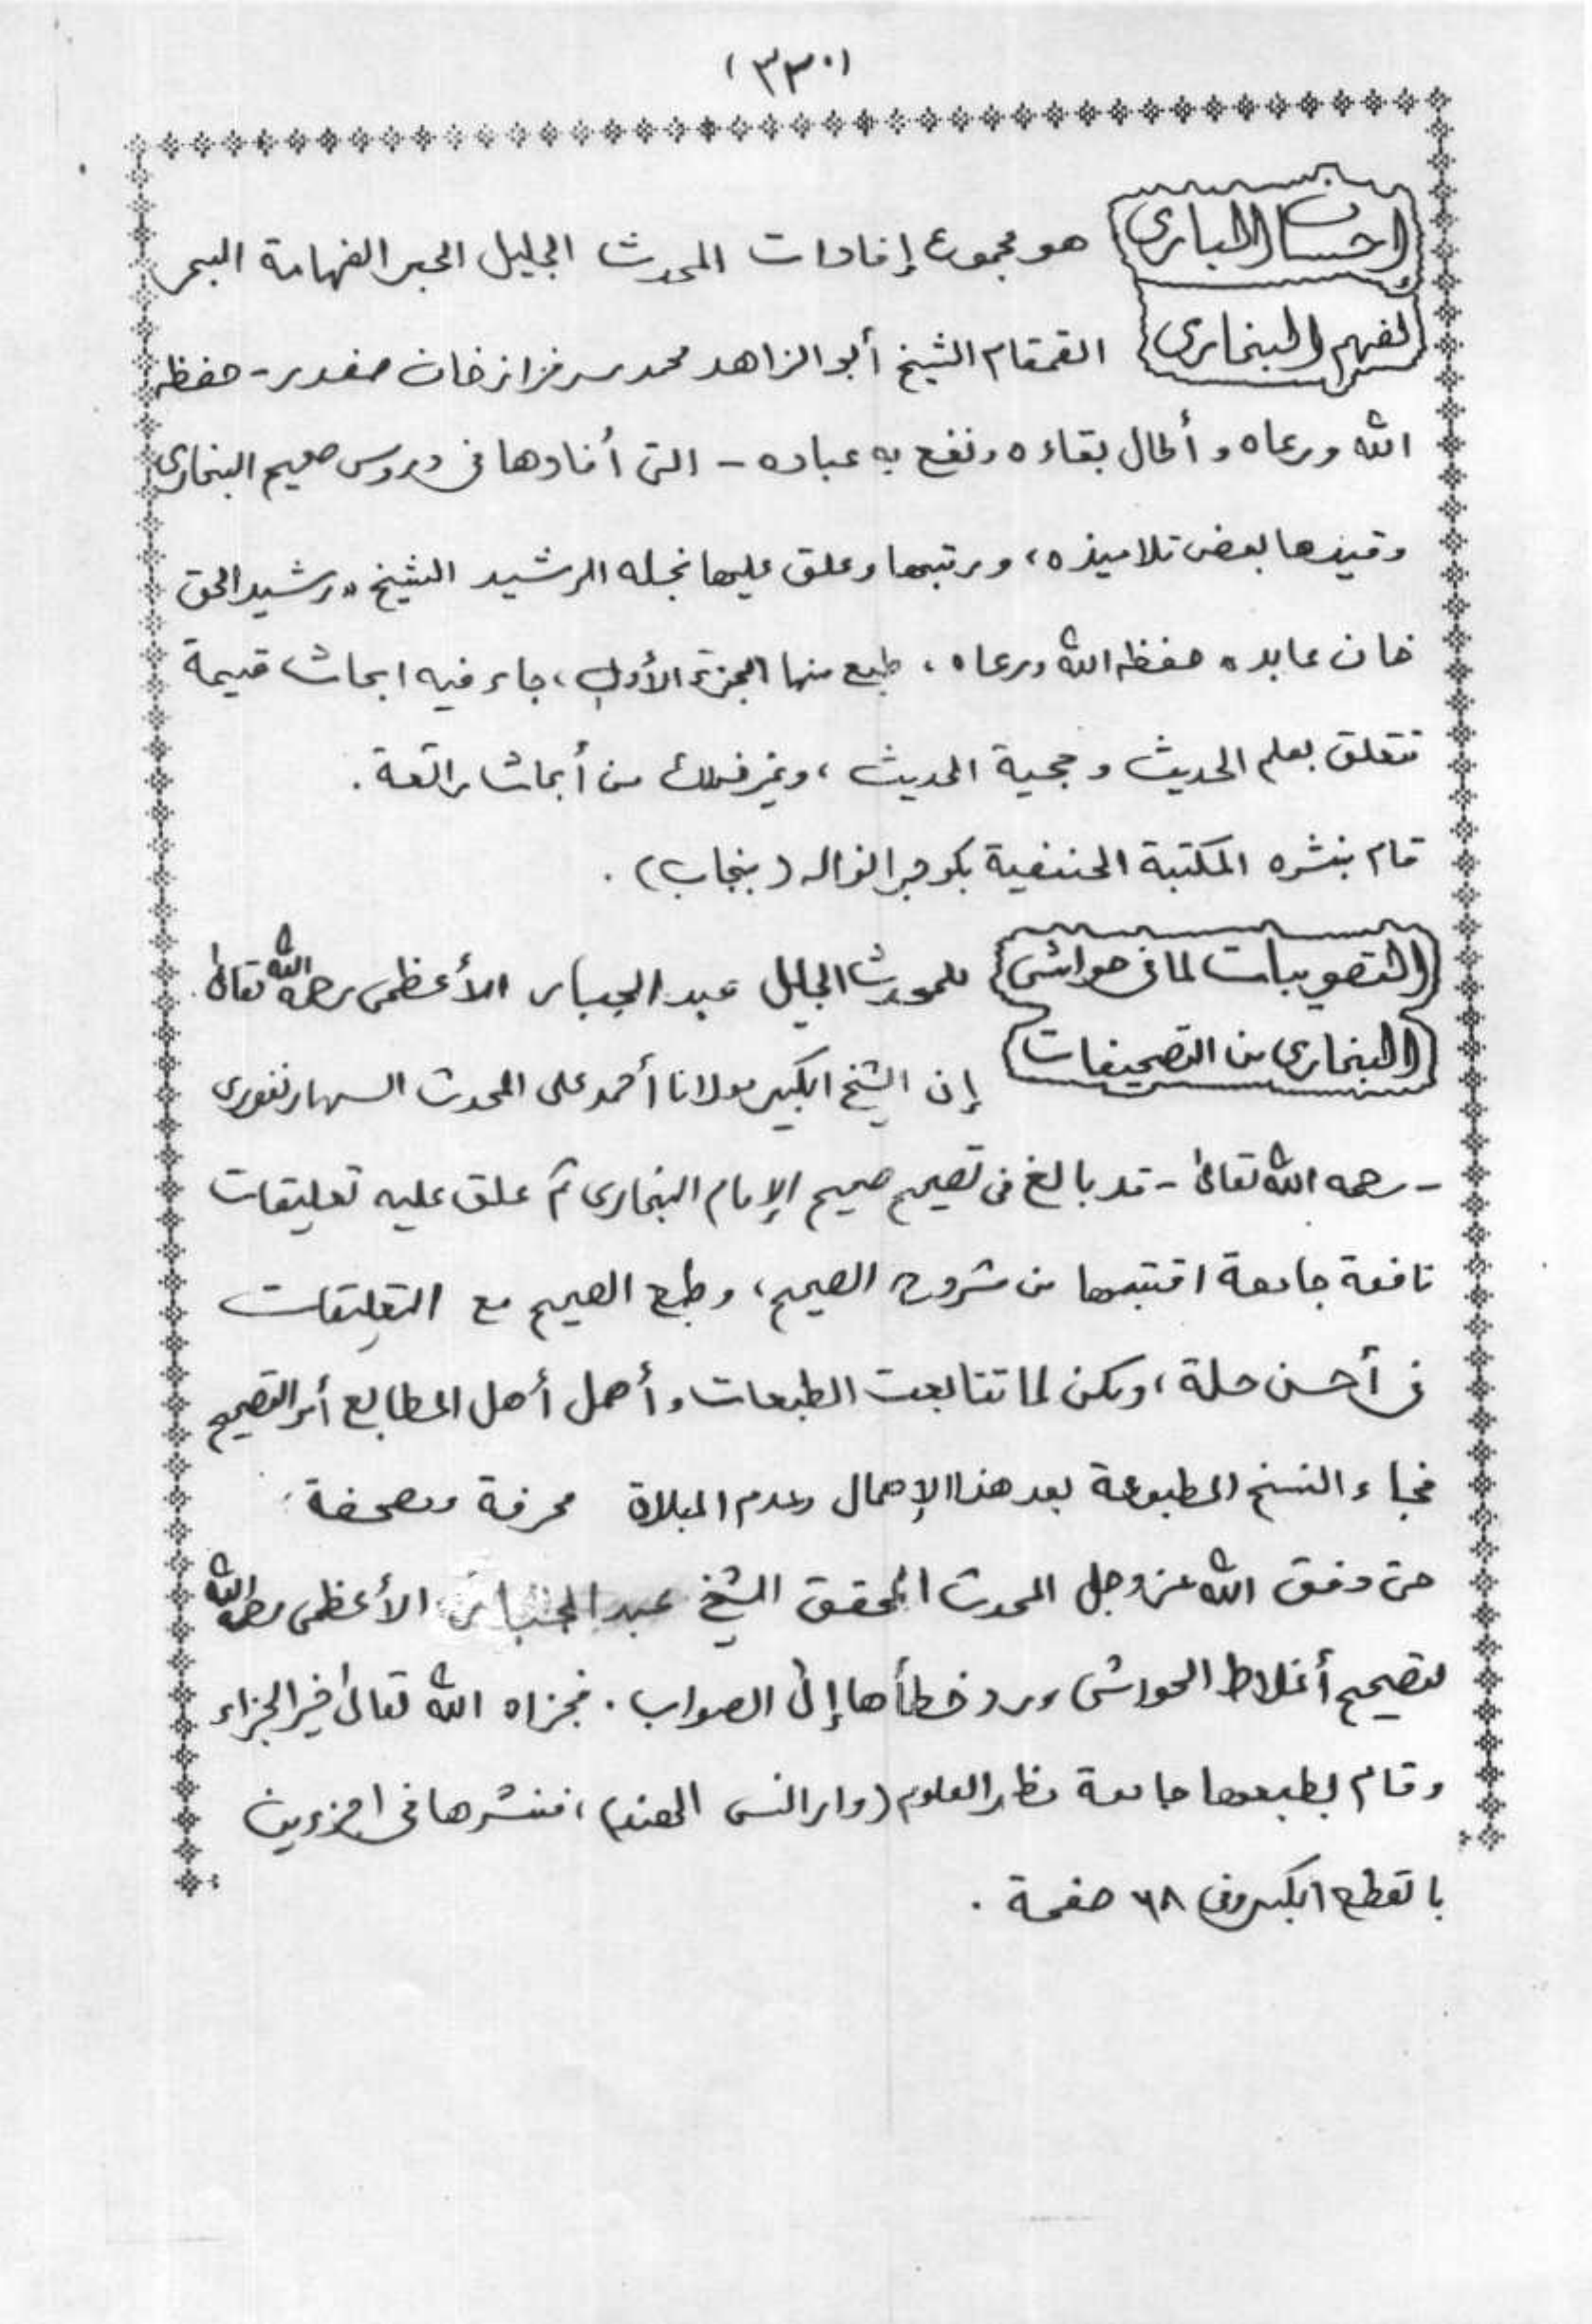 (٣٣٠)
إحسان الباري هو مجموع إفادات المحدث الجليل الحبر الفهامة البحر
لفهم البخاري القمقام الشيخ أبو الزاهد محمد سرفراز خان صفدر - حفظه
الله ورعاه وأطال بقاءه ونفع به عباده - التي أفادها في دروس صحيح البخاري
وقيدها بعض تلاميذه، ورتبها وعلق عليها نجله الرشيد الشيخ "رشيد الحق
خان عابد" حفظه الله ورعاه، طبع منها الجزء الأول، جاء فيه ابحاث قيمة
تتعلق بعلم الحديث وحجية الحديث، وغير ذلك من أبحاث رائعة.
قام بنشره المكتبة الحنفية بكوجرانواله (بنجاب).
التصويبات لما في حواشي للمحدث الجليل عبد الجبار الأعظمي رحمه الله تعالى
البخاري من التصحيفات إن الشيخ الكبير مولانا أحمد علي المحدث السهارنفوري
- رحمه الله تعالى - قد بالغ في تصحيح صحيح الإمام البخاري ثم علق عليه تعليقات
نافعة جامعة اقتبسها من شروح الصحيح، وطبع الصحيح مع التعليقات
في أحسن حلة، ولكن لما تتابعت الطبعات وأهمل أهل المطابع أمر التصحيح
فجاء النسخ المطبوعة بعد هذا الإهمال وعدم المبلاة محرفة ومصحفة
حتى وفق الله عز وجل المحدث المحقق الشيخ عبد الجبار الأعظمي رحمه الله
لتصحيح أغلاط الحواشي ورد خطأها إلى الصواب. فجزاه الله تعالى خير الجزاء
وقام بطبعها جامعة مظهر العلوم (وارانسي الهند)، فنشرها في جزءين
بالقطع الكبير وفي ٦٨ صفحة.